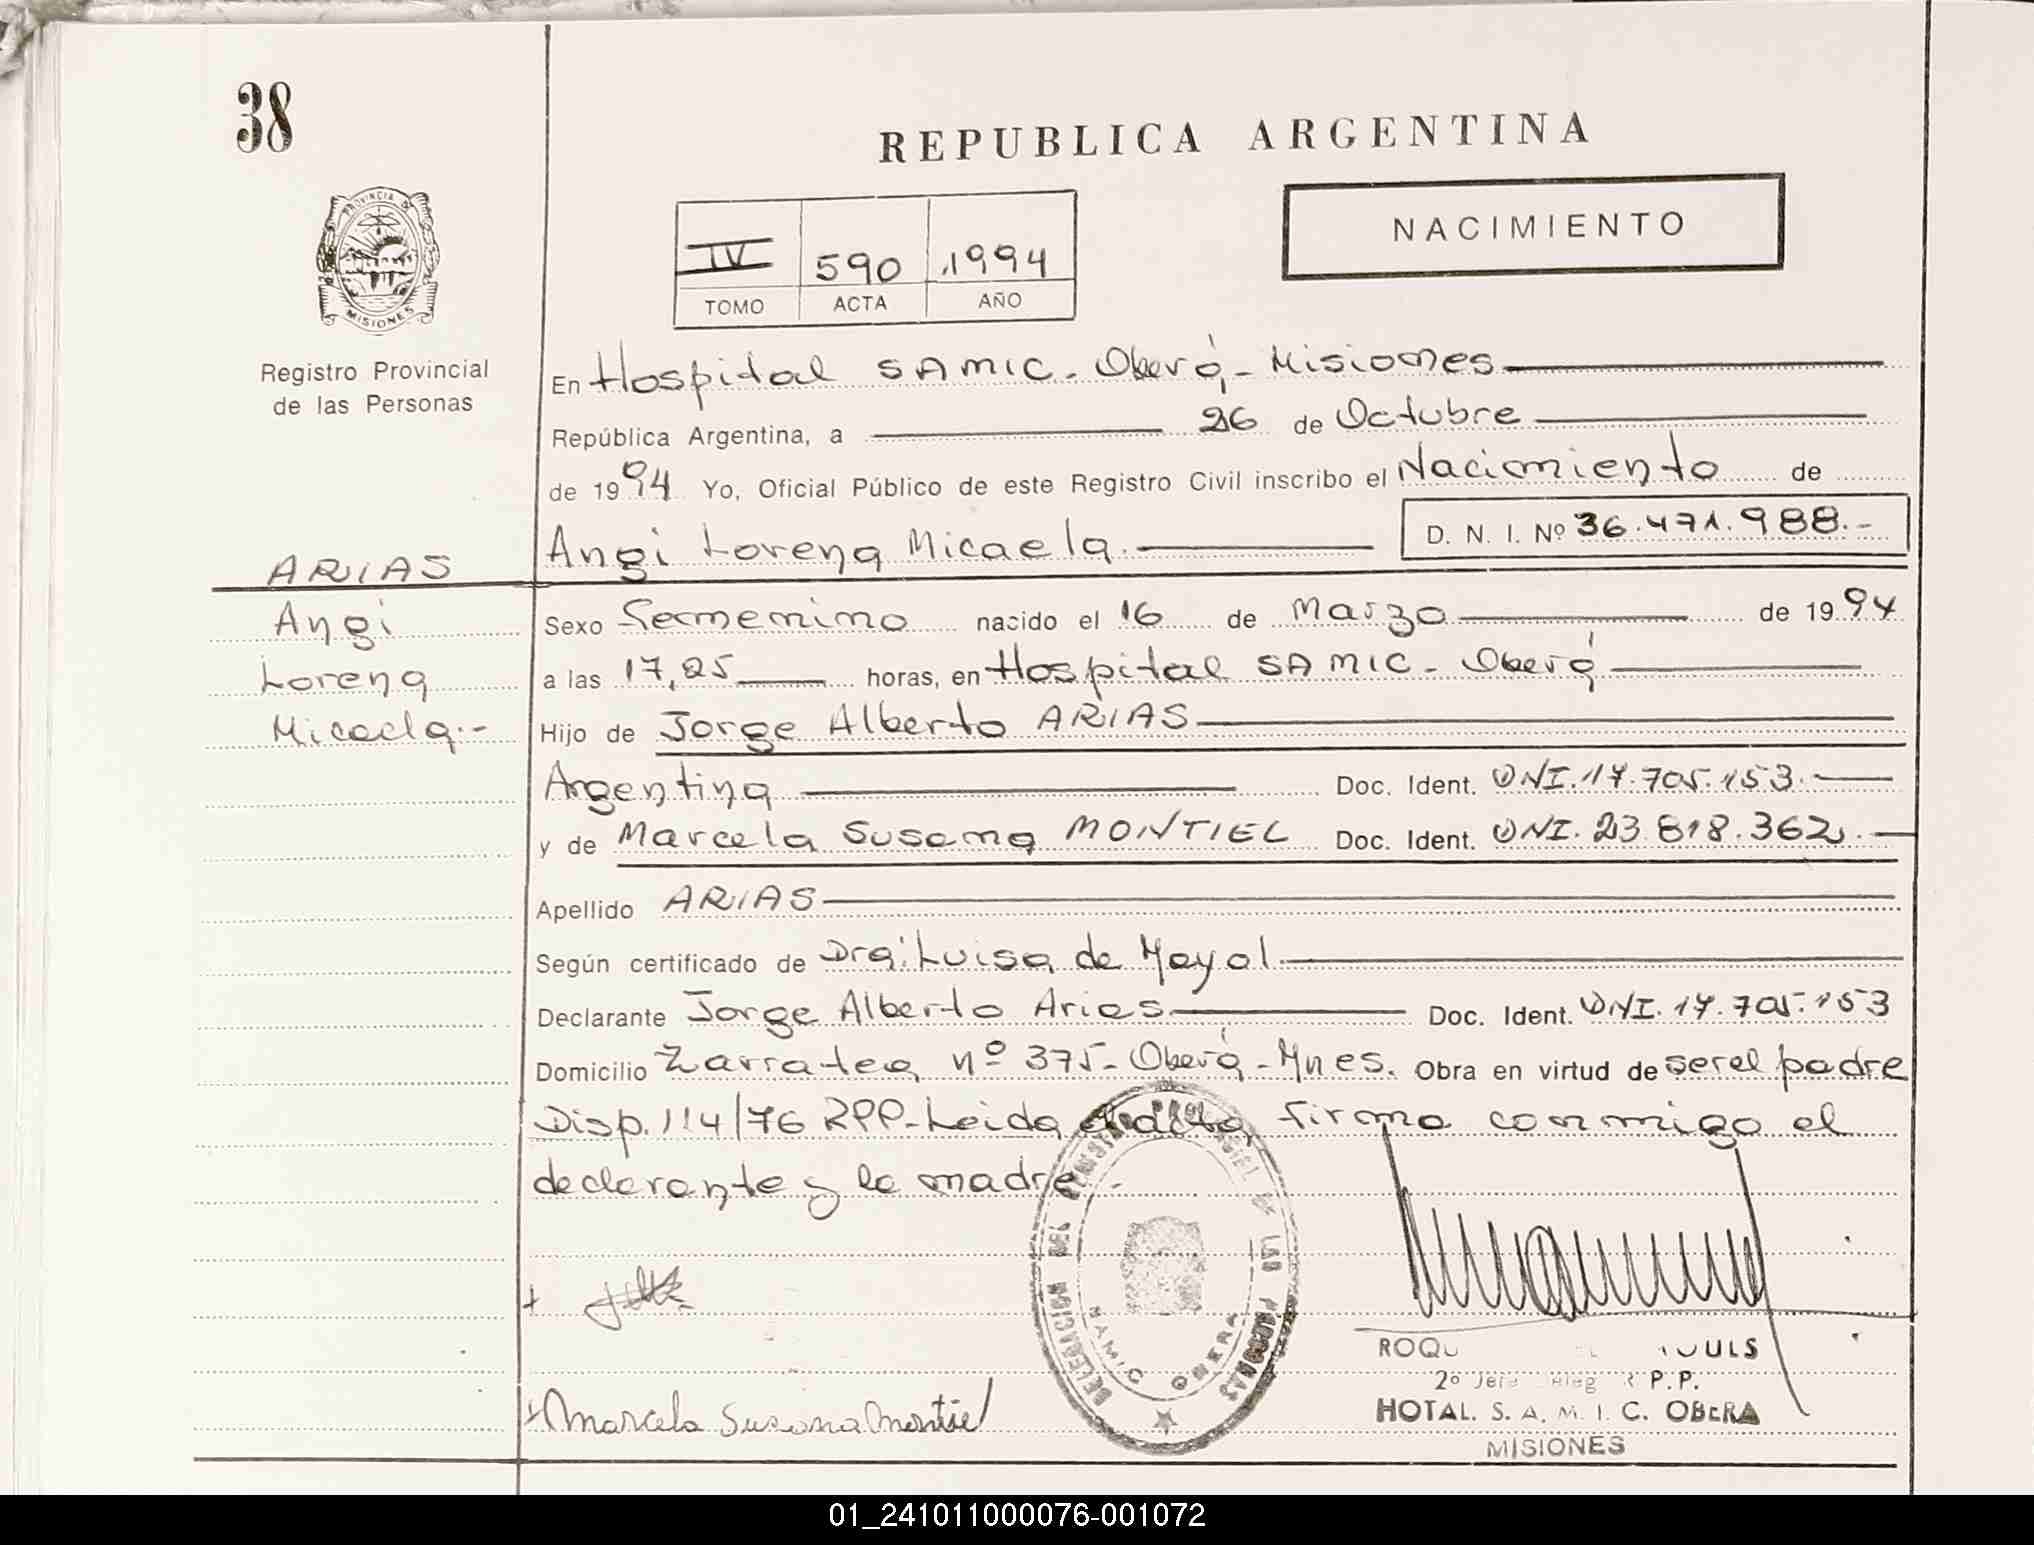 38
REPUBLICA ARGENTINA
NACIMIENTO
IV 590 1994
TOMO ACTA AÑO
PROVINCIA DE
MISIONES
Registro Provincial
de las Personas
En Hospital SAMIC - Oberá - Misiones
República Argentina, a 26 de Octubre
de 1994 Yo, Oficial Público de este Registro Civil inscribo el Nacimiento de
Angi Lorena Micaela.
D. N. I. Nº 36.471.988.-
ARIAS
Angi
Lorena
Micaela.-
Sexo Femenino nacido el 16 de Marzo de 1994
a las 17,25 horas, en Hospital SAMIC - Oberá
Hijo de Jorge Alberto ARIAS
Argentina Doc. Ident. DNI. 17.705.153.
y de Marcela Susana MONTIEL Doc. Ident. DNI. 23.818.362.
Apellido ARIAS
Según certificado de Dra. Luisa de Mayol
Declarante Jorge Alberto Arias Doc. Ident. DNI. 17.705.153
Domicilio Zarratea nº 375 - Oberá - Mnes. Obra en virtud de ser el padre
Disp. 114/76 RPP - Leida el acta, firma conmigo el
declarante y la madre.-
DELEGACION DEL REGISTRO DE LAS PERSONAS
SAMIC OBERA
Marcela Susana Montiel
2º Jefe P.P.
HOTAL. S. A. M. I. C. OBERA
MISIONES
01_241011000076-001072